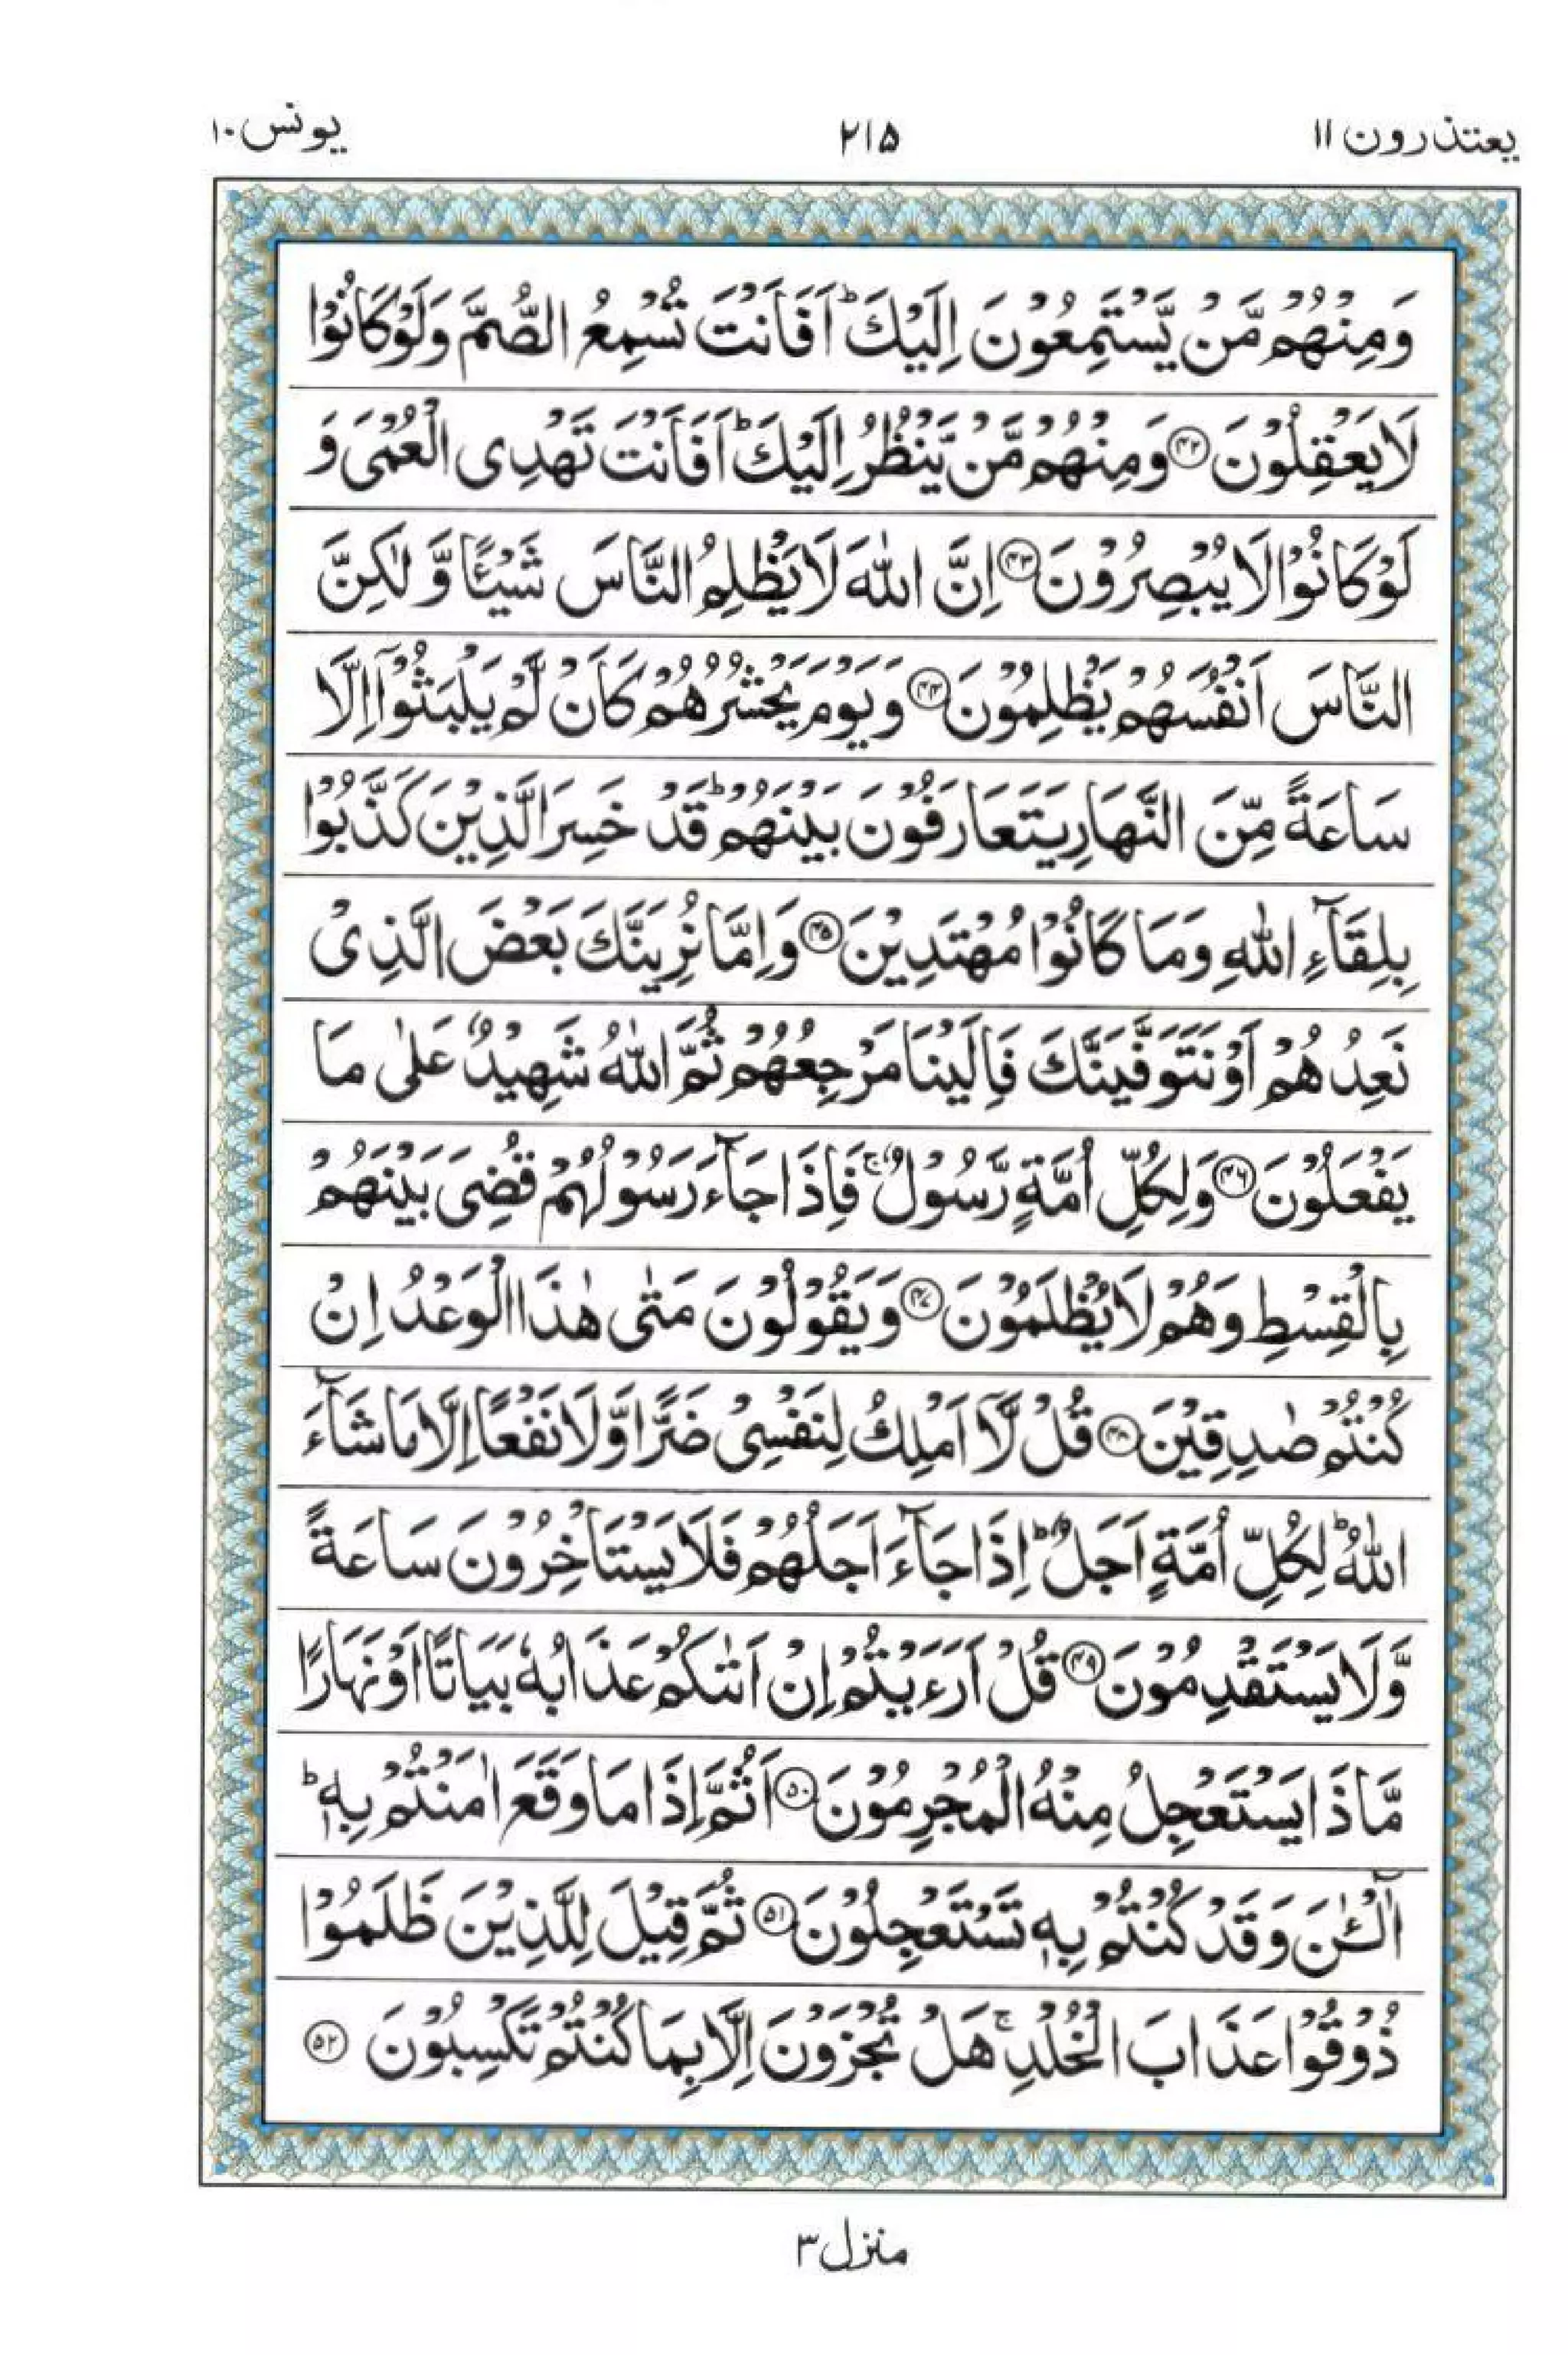 یعتذرون ۱۱
۲۱۵
یونس ۱۰
وَمِنْهُمْ مَّنْ يَّسْتَمِعُوْنَ اِلَيْكَ ؕ اَفَاَنْتَ تُسْمِعُ الصُّمَّ وَلَوْ كَانُوْا
لَا يَعْقِلُوْنَ ﴿۴۲﴾ وَمِنْهُمْ مَّنْ يَّنْظُرُ اِلَيْكَ ؕ اَفَاَنْتَ تَهْدِى الْعُمْىَ وَ
لَوْ كَانُوْا لَا يُبْصِرُوْنَ ﴿۴۳﴾ اِنَّ اللّٰهَ لَا يَظْلِمُ النَّاسَ شَيْئًا وَّلٰكِنَّ
النَّاسَ اَنْفُسَهُمْ يَظْلِمُوْنَ ﴿۴۴﴾ وَيَوْمَ يَحْشُرُهُمْ كَاَنْ لَّمْ يَلْبَثُوْۤا اِلَّا
سَاعَةً مِّنَ النَّهَارِ يَتَعَارَفُوْنَ بَيْنَهُمْ ؕ قَدْ خَسِرَ الَّذِيْنَ كَذَّبُوْا
بِلِقَآءِ اللّٰهِ وَمَا كَانُوْا مُهْتَدِيْنَ ﴿۴۵﴾ وَاِمَّا نُرِيَنَّكَ بَعْضَ الَّذِىْ
نَعِدُهُمْ اَوْ نَتَوَفَّيَنَّكَ فَاِلَيْنَا مَرْجِعُهُمْ ثُمَّ اللّٰهُ شَهِيْدٌ عَلٰى مَا
يَفْعَلُوْنَ ﴿۴۶﴾ وَلِكُلِّ اُمَّةٍ رَّسُوْلٌ ۚ فَاِذَا جَآءَ رَسُوْلُهُمْ قُضِىَ بَيْنَهُمْ
بِالْقِسْطِ وَهُمْ لَا يُظْلَمُوْنَ ﴿۴۷﴾ وَيَقُوْلُوْنَ مَتٰى هٰذَا الْوَعْدُ اِنْ
كُنْتُمْ صٰدِقِيْنَ ﴿۴۸﴾ قُلْ لَّاۤ اَمْلِكُ لِنَفْسِىْ ضَرًّا وَّلَا نَفْعًا اِلَّا مَا شَآءَ
اللّٰهُ ؕ لِكُلِّ اُمَّةٍ اَجَلٌ ؕ اِذَا جَآءَ اَجَلُهُمْ فَلَا يَسْتَاْخِرُوْنَ سَاعَةً
وَّلَا يَسْتَقْدِمُوْنَ ﴿۴۹﴾ قُلْ اَرَءَيْتُمْ اِنْ اَتٰىكُمْ عَذَابُهٗ بَيَاتًا اَوْ نَهَارًا
مَّاذَا يَسْتَعْجِلُ مِنْهُ الْمُجْرِمُوْنَ ﴿۵۰﴾ اَثُمَّ اِذَا مَا وَقَعَ اٰمَنْتُمْ بِهٖ ؕ
آٰلْـٰٔنَ وَقَدْ كُنْتُمْ بِهٖ تَسْتَعْجِلُوْنَ ﴿۵۱﴾ ثُمَّ قِيْلَ لِلَّذِيْنَ ظَلَمُوْا
ذُوْقُوْا عَذَابَ الْخُلْدِ ۚ هَلْ تُجْزَوْنَ اِلَّا بِمَا كُنْتُمْ تَكْسِبُوْنَ ﴿۵۲﴾
منزل ۳